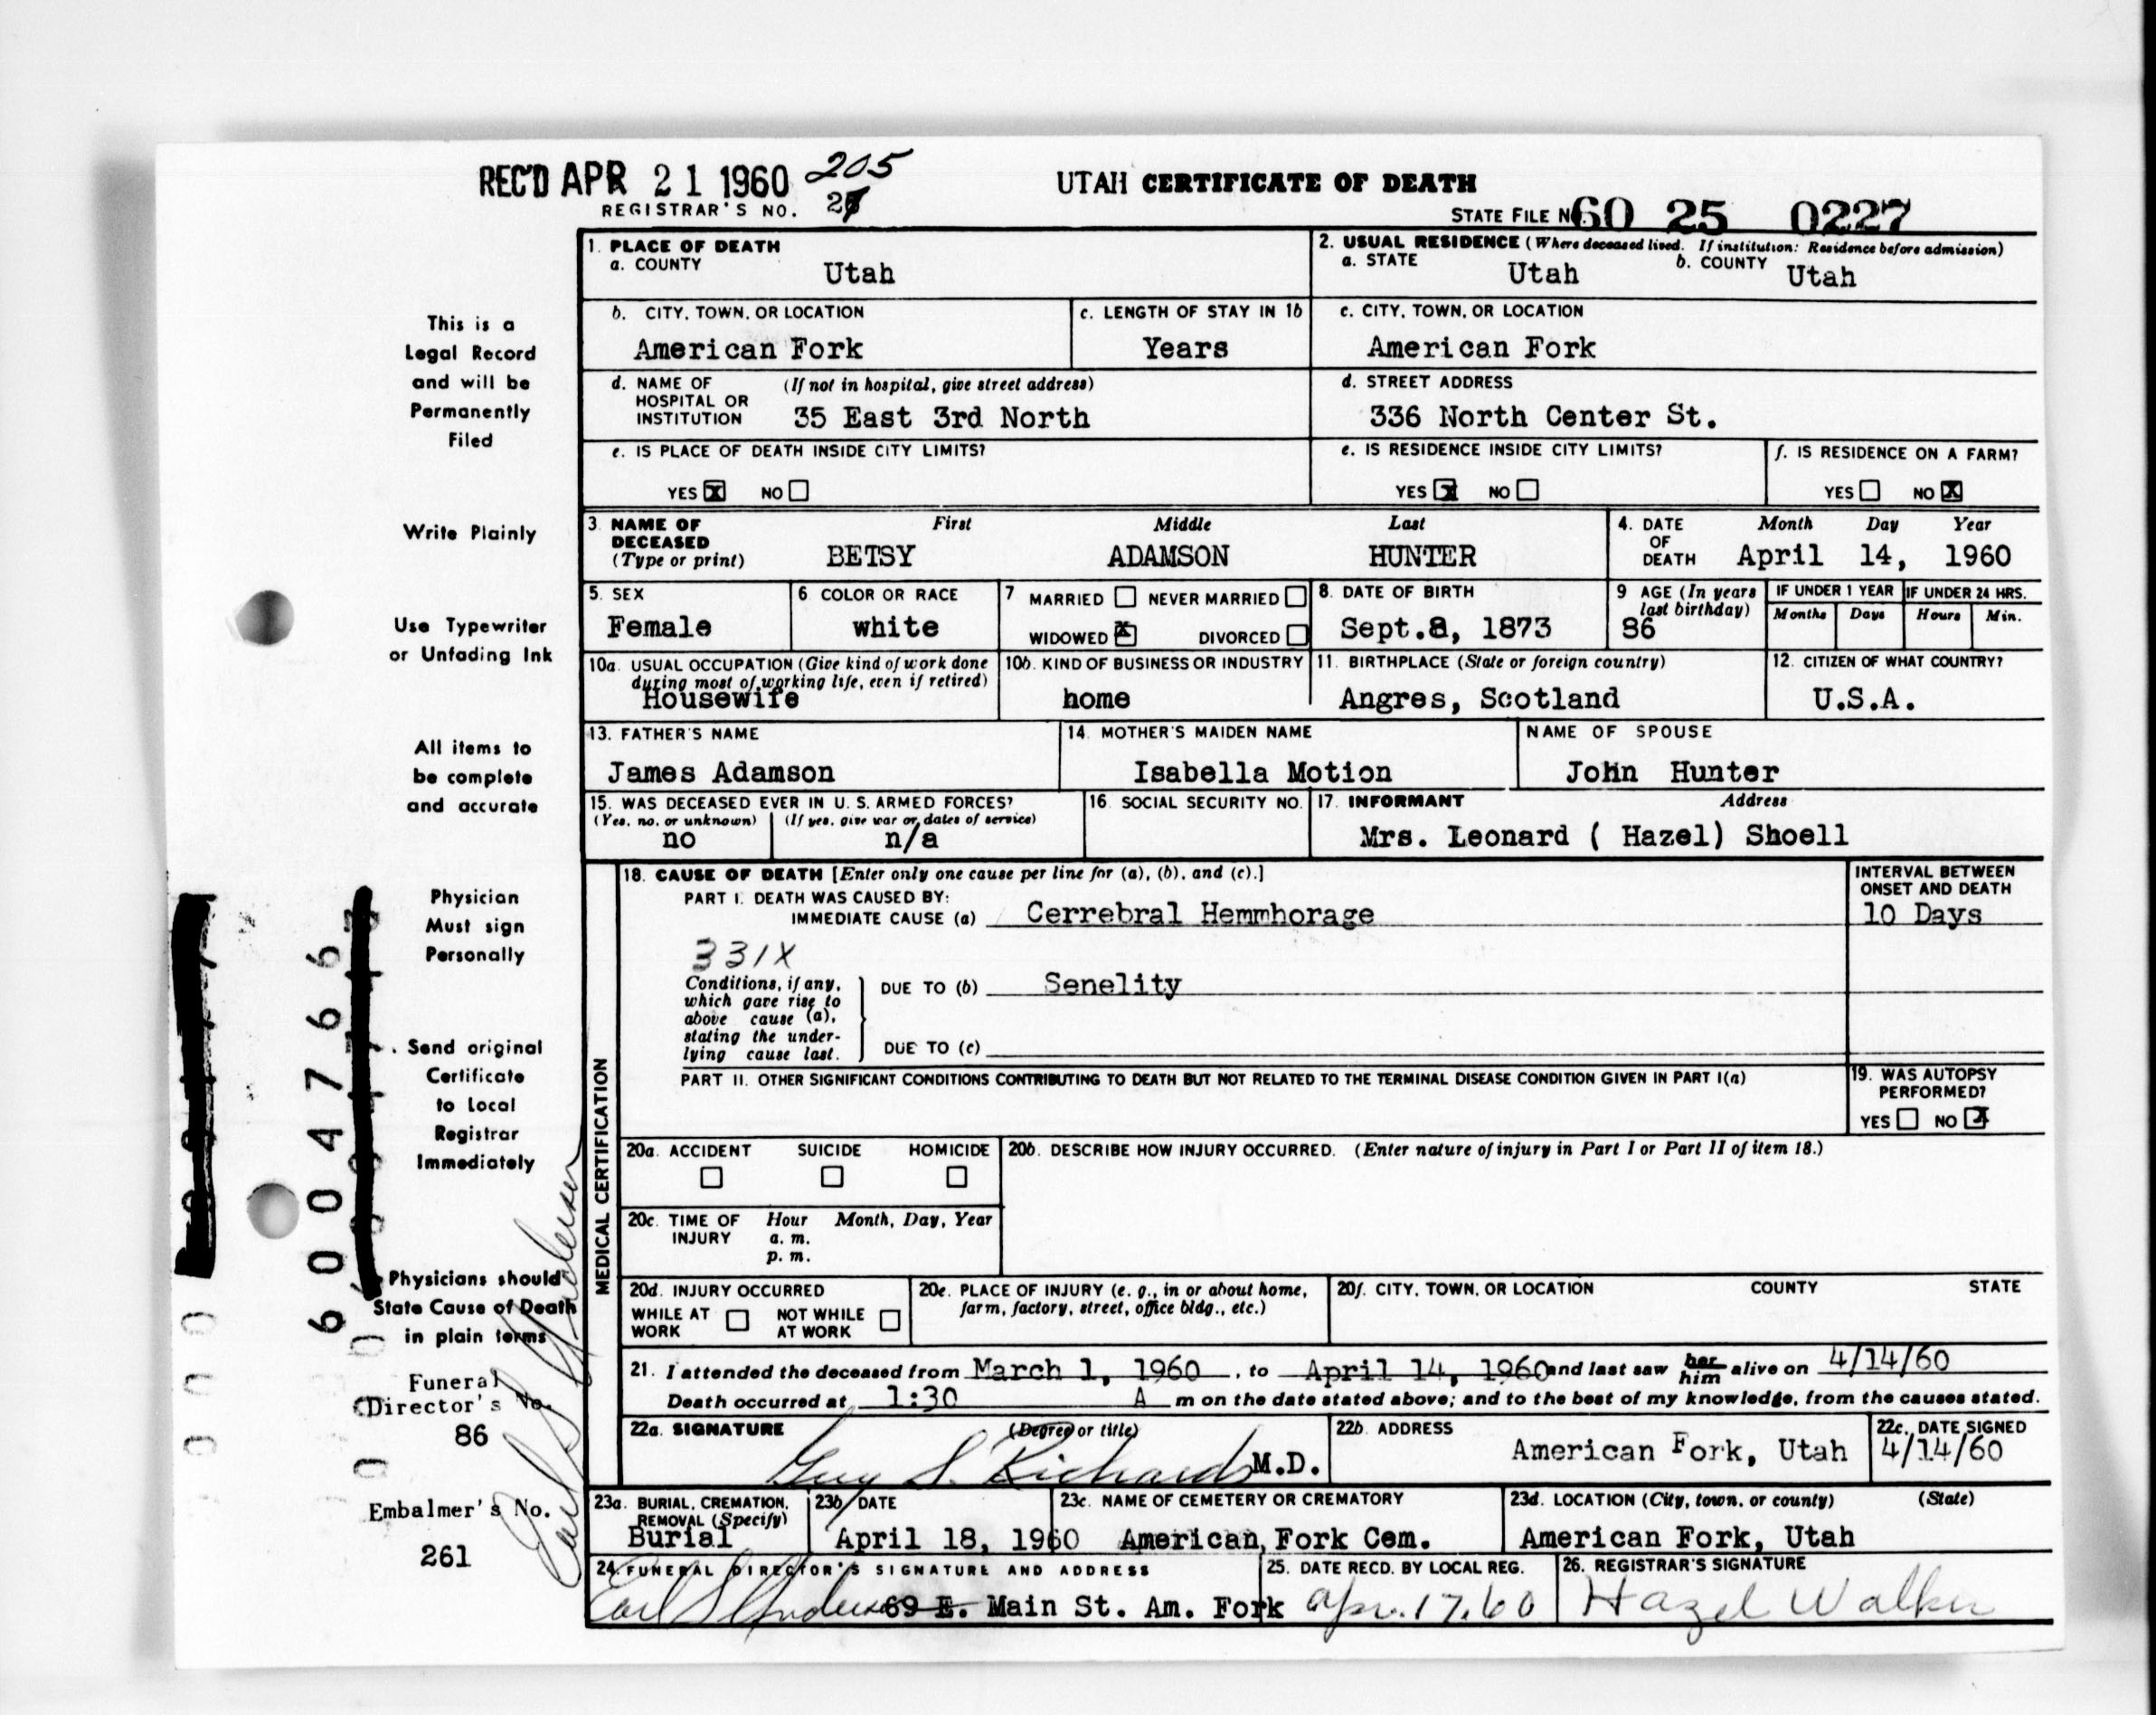 REC'D APR 21 1960 205
UTAH CERTIFICATE OF DEATH
REGISTRAR'S NO.
STATE FILE NO. 60 25 0227
1. PLACE OF DEATH
a. COUNTY Utah
2. USUAL RESIDENCE (Where deceased lived. If institution: Residence before admission)
a. STATE Utah b. COUNTY Utah
b. CITY, TOWN, OR LOCATION American Fork
c. LENGTH OF STAY IN 1b Years
c. CITY, TOWN, OR LOCATION American Fork
d. NAME OF HOSPITAL OR INSTITUTION (If not in hospital, give street address) 35 East 3rd North
d. STREET ADDRESS 336 North Center St.
e. IS PLACE OF DEATH INSIDE CITY LIMITS? YES X NO
e. IS RESIDENCE INSIDE CITY LIMITS? YES X NO
f. IS RESIDENCE ON A FARM? YES NO X
3. NAME OF DECEASED (Type or print) First BETSY Middle ADAMSON Last HUNTER
4. DATE OF DEATH Month Day Year April 14, 1960
5. SEX Female
6 COLOR OR RACE white
7 MARRIED NEVER MARRIED
WIDOWED X DIVORCED
8. DATE OF BIRTH Sept.8, 1873
9 AGE (In years last birthday) 86
IF UNDER 1 YEAR Months Days
IF UNDER 24 HRS. Hours Min.
10a. USUAL OCCUPATION (Give kind of work done during most of working life, even if retired) Housewife
10b. KIND OF BUSINESS OR INDUSTRY home
11. BIRTHPLACE (State or foreign country) Angres, Scotland
12. CITIZEN OF WHAT COUNTRY? U.S.A.
13. FATHER'S NAME James Adamson
14. MOTHER'S MAIDEN NAME Isabella Motion
NAME OF SPOUSE John Hunter
15. WAS DECEASED EVER IN U. S. ARMED FORCES?
(Yes, no, or unknown) no (If yes, give war or dates of service) n/a
16. SOCIAL SECURITY NO.
17. INFORMANT Address
Mrs. Leonard ( Hazel) Shoell
MEDICAL CERTIFICATION
18. CAUSE OF DEATH [Enter only one cause per line for (a), (b), and (c).]
INTERVAL BETWEEN ONSET AND DEATH
PART I. DEATH WAS CAUSED BY:
IMMEDIATE CAUSE (a) Cerrebral Hemmhorage 10 Days
331X
Conditions, if any, which gave rise to above cause (a), stating the underlying cause last.
DUE TO (b) Senelity
DUE TO (c)
PART II. OTHER SIGNIFICANT CONDITIONS CONTRIBUTING TO DEATH BUT NOT RELATED TO THE TERMINAL DISEASE CONDITION GIVEN IN PART I(a)
19. WAS AUTOPSY PERFORMED? YES NO X
20a. ACCIDENT SUICIDE HOMICIDE
20b. DESCRIBE HOW INJURY OCCURRED. (Enter nature of injury in Part I or Part II of item 18.)
20c. TIME OF INJURY Hour Month, Day, Year
a. m.
p. m.
20d. INJURY OCCURRED
WHILE AT WORK NOT WHILE AT WORK
20e. PLACE OF INJURY (e. g., in or about home, farm, factory, street, office bldg., etc.)
20f. CITY, TOWN, OR LOCATION COUNTY STATE
21. I attended the deceased from March 1, 1960, to April 14, 1960 and last saw her him alive on 4/14/60
Death occurred at 1:30 A m on the date stated above; and to the best of my knowledge, from the causes stated.
22a. SIGNATURE (Degree or title) Guy S. Richards M.D.
22b. ADDRESS American Fork, Utah
22c. DATE SIGNED 4/14/60
23a. BURIAL, CREMATION, REMOVAL (Specify) Burial
23b. DATE April 18, 1960
23c. NAME OF CEMETERY OR CREMATORY American Fork Cem.
23d. LOCATION (City, town, or county) (State) American Fork, Utah
24. FUNERAL DIRECTOR'S SIGNATURE AND ADDRESS
Earl S Anderson 69 E. Main St. Am. Fork
25. DATE RECD. BY LOCAL REG. Apr. 17, 60
26. REGISTRAR'S SIGNATURE Hazel Walker
This is a
Legal Record
and will be
Permanently
Filed
Write Plainly
Use Typewriter
or Unfading Ink
All items to
be complete
and accurate
Physician
Must sign
Personally
Send original
Certificate
to Local
Registrar
Immediately
Physicians should
State Cause of Death
in plain terms
Funeral
Director's No.
86
Embalmer's No.
261
Earl S Anderson
6004766